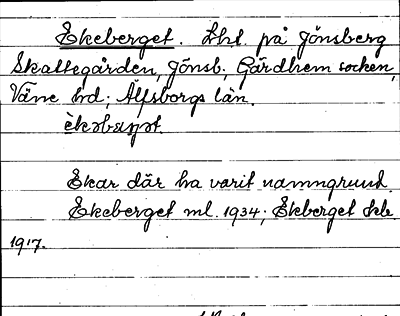 Ekeberget. Lhl. på Jönsberg
Skattegården, Jönsb.; Gärdhem socken,
Väne hd; Älfsborgs län.
Ekar där ha varit namngrund.
Ekeberget ml. 1934; Ekeberget
1917.